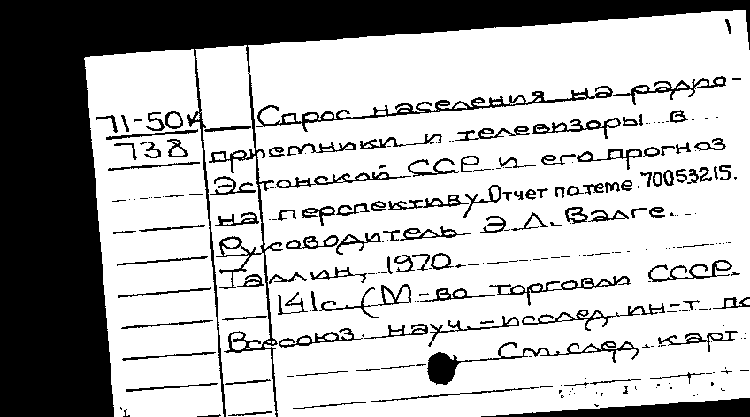 1
71-50к Спрос населения на радио-
738 приемники и телевизоры в
Эстонской ССР и его прогноз
на перспективу. Отчет по теме 70053215.
Руководитель Э.Л. Валге.
Таллин, 1970.
141с. (М-во торговли СССР.
Всесоюз. науч.-исслед. ин-т по
См. след. карт